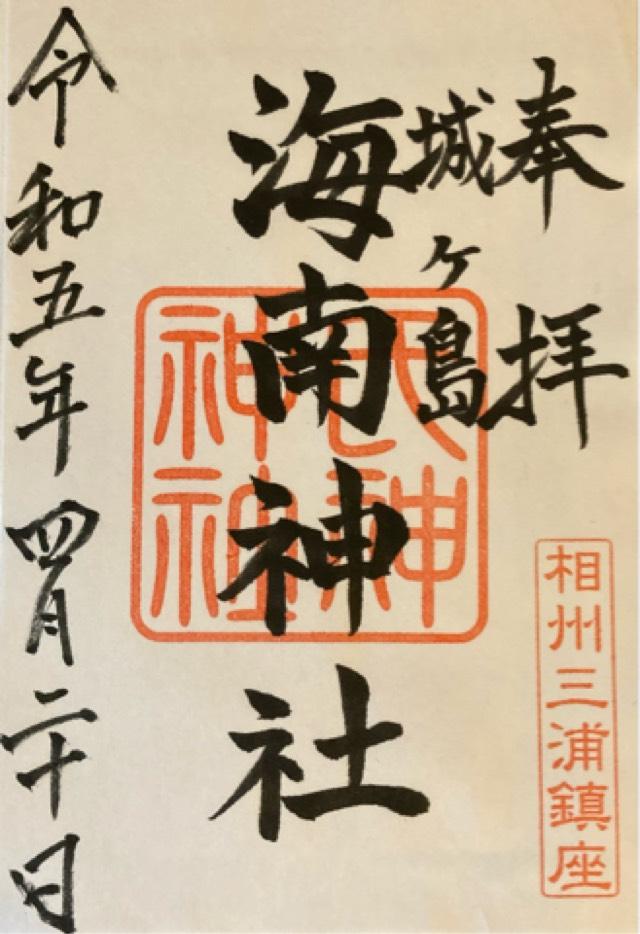 奉拝
相州三浦鎮座
城ヶ島
海南神社
令和五年四月二十日